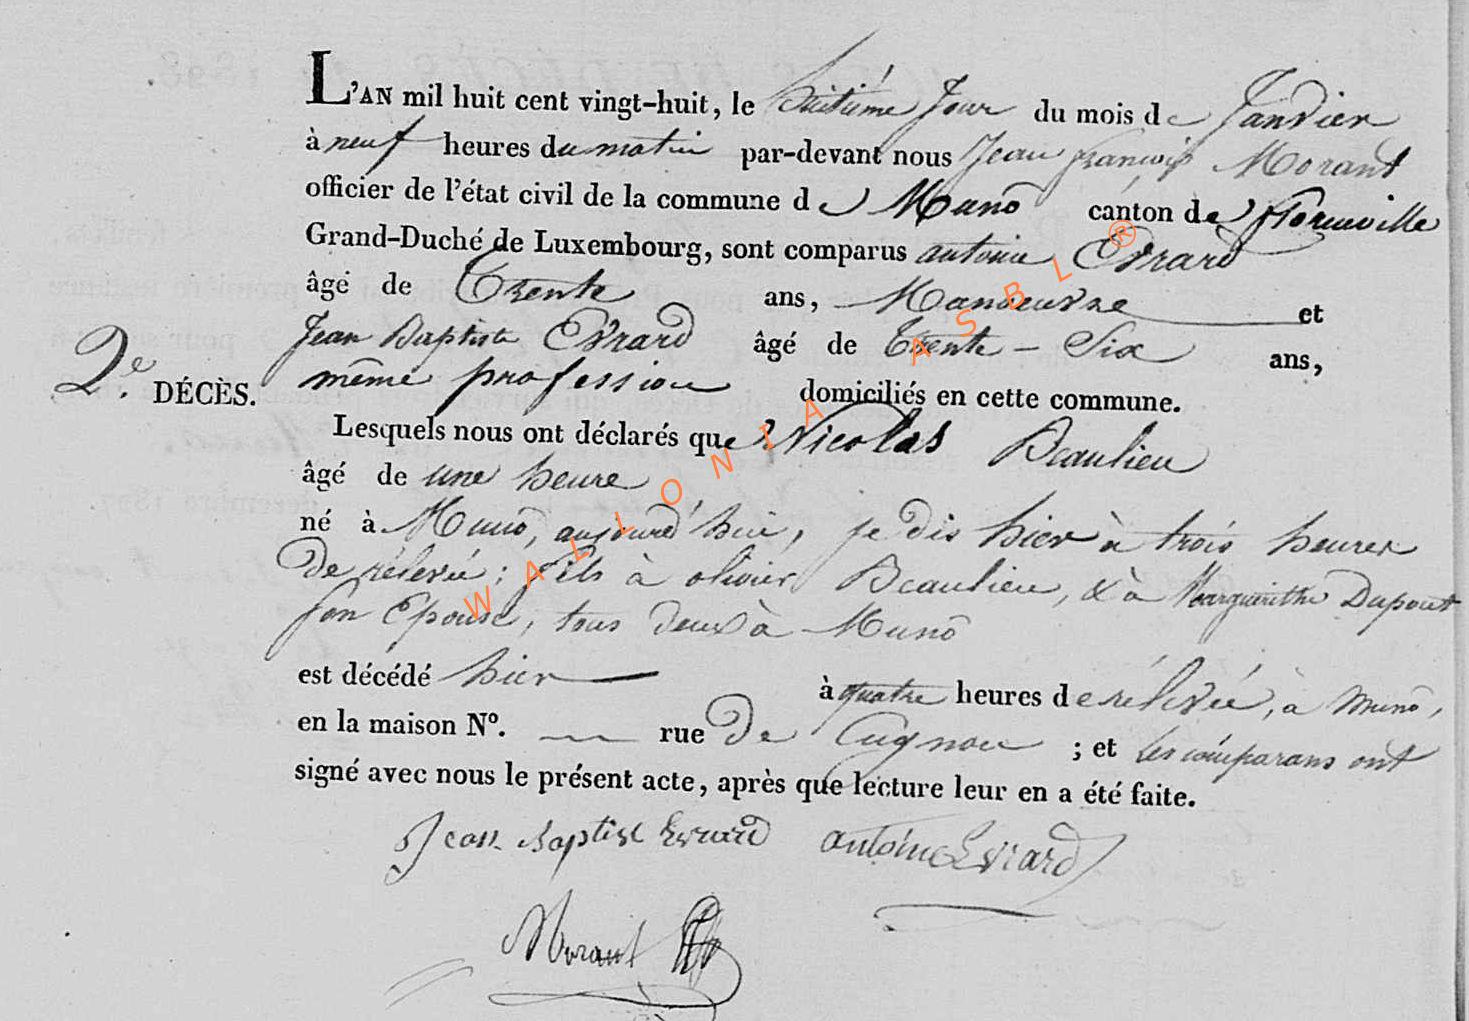 L'AN mil huit cent vingt-huit, le huitième Jour du mois de Janvier
à neuf heures du matin par-devant nous Jean françois Morant
officier de l'état civil de la commune de Munô canton de florenville
Grand-Duché de Luxembourg, sont comparus antoine Evrard
âgé de Trente ans, Manoeuvre et
Jean Baptiste Evrard âgé de Trente-Six ans,
2e DÉCÈS.
même profession domiciliés en cette commune.
Lesquels nous ont déclarés que Nicolas Beaulieu
âgé de une heure
né à Munô, aujourd'hui, je dis hier à trois heures
de rélevée; fils à olivier Beaulieu, & à Marguerithe Dupont
son Epouse, tous deux à Munô
est décédé hier à quatre heures de rélevée, à munô,
en la maison Nº. rue De Cugnon ; et les comparans ont
signé avec nous le présent acte, après que lecture leur en a été faite.
Jean Baptist Evrard antoine Evrard
Morant
WALLONIA ASBL ®